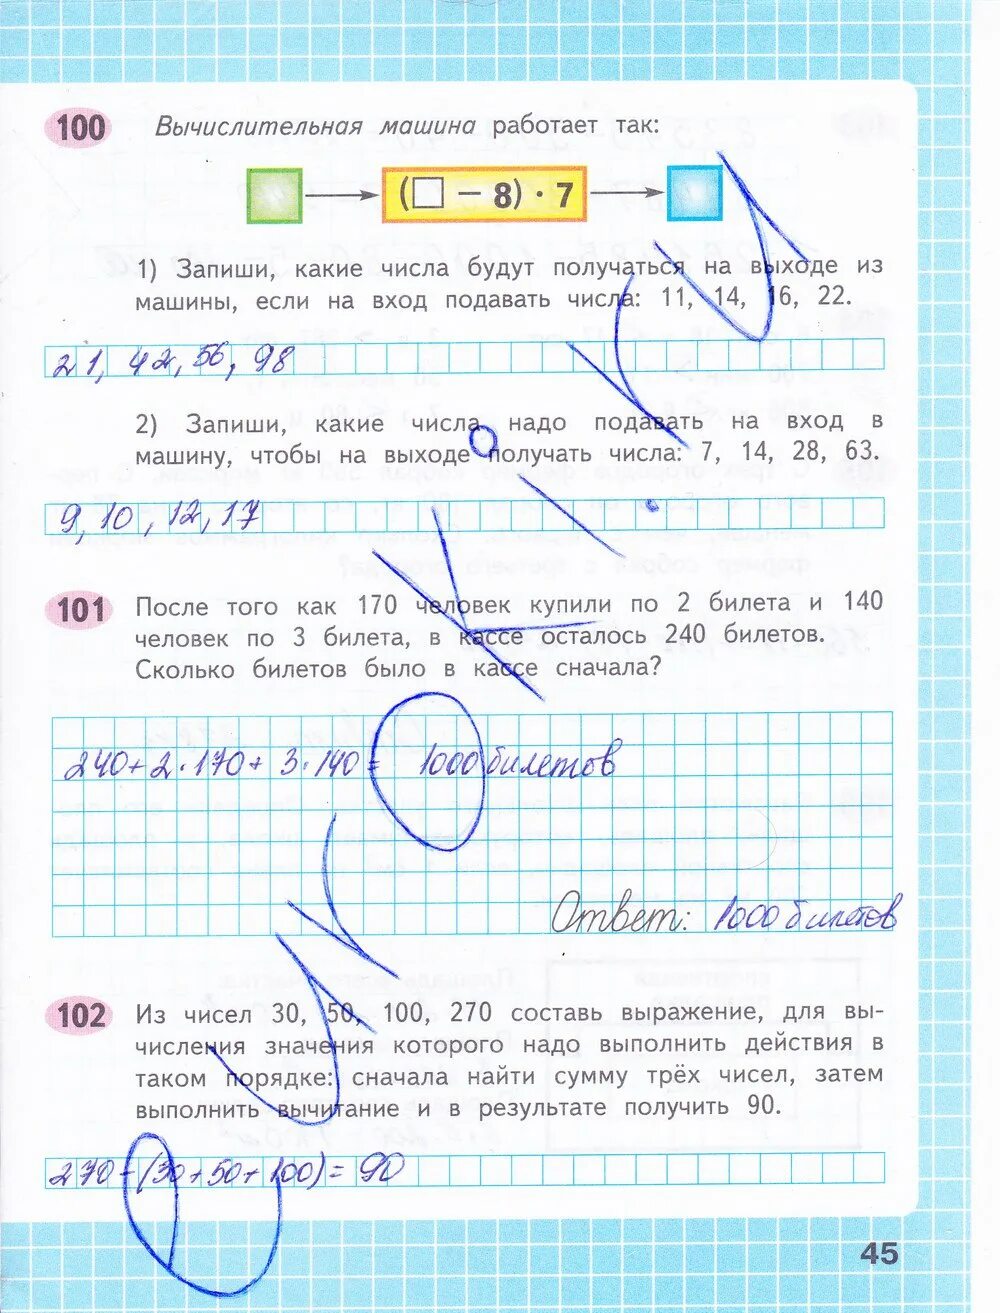 100 Вычислительная машина работает так:
(□ − 8) · 7
1) Запиши, какие числа будут получаться на выходе из
машины, если на вход подавать числа: 11, 14, 16, 22.
21, 42, 56, 98
2) Запиши, какие числа надо подавать на вход в
машину, чтобы на выходе получать числа: 7, 14, 28, 63.
9, 10, 12, 17
101 После того как 170 человек купили по 2 билета и 140
человек по 3 билета, в кассе осталось 240 билетов.
Сколько билетов было в кассе сначала?
240+2·170+3·140= 1000 билетов
Ответ: 1000 билетов
102 Из чисел 30, 50, 100, 270 составь выражение, для вы-
числения значения которого надо выполнить действия в
таком порядке: сначала найти сумму трёх чисел, затем
выполнить вычитание и в результате получить 90.
270-(30+50+100)=90
45